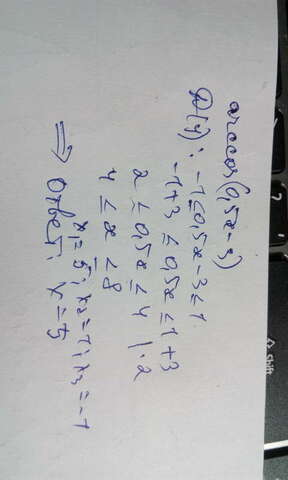 arccos(0,5x-3)
D(y): -1≤0,5x-3≤1
-1+3 ≤0,5x ≤1+3
2 ≤ 0,5x ≤ 4 | ·2
4 ≤ x ≤ 8
x₁=5; x₂=1; x₃=-1
⇒ Ответ: x=5
Shift